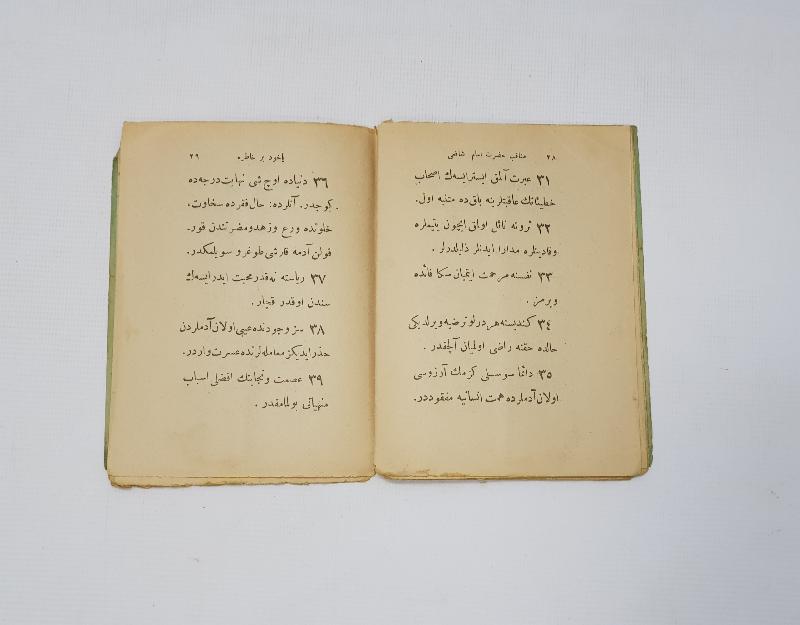 ٢٨ مناقب حضرت امام شافعی
٣١ عبرت آلمق ایسترایسه‌ك اصحاب
خطیئاتك عاقبتلرینه باق‌ده متنبه اول.
٣٢ ثروته نائل اولمق ایچون یتیملره
وقادینلره مدارا ایدنلر ذلیلدرلر .
٣٣ نفسنه مرحمت ایتمیان سکا فائده
ویرمز .
٣٤ کندیسنه هر درلو ترضیه ویرلدیکی
حالده حقنه راضی اولمیان آلچقدر .
٣٥ دائما سوسلی کزمك آرزوسی
اولان آدملرده همت انسانیه مفقوددر.
یاخود بر خاطره ٢٩
٣٦ دنیاده اوچ شی نهایت درجه‌ده
کوجدر. آنلرده: حال فقرده سخاوت،
خلوتده ورع وزهد ومضرتندن قور-
قولن آدمه قارشی طوغرو سویلمکدر.
٣٧ ریاسته نه‌قدر محبت ایدرایسه‌ك
سندن اوقدر قچار .
٣٨ سز وجودنده عیبی اولان آدملردن
حذر ایدیکز معامله‌لرنده عسرت واردر.
٣٩ عصمت ونجابتك افضلی اسباب
منهیاتی بولمامقدر .